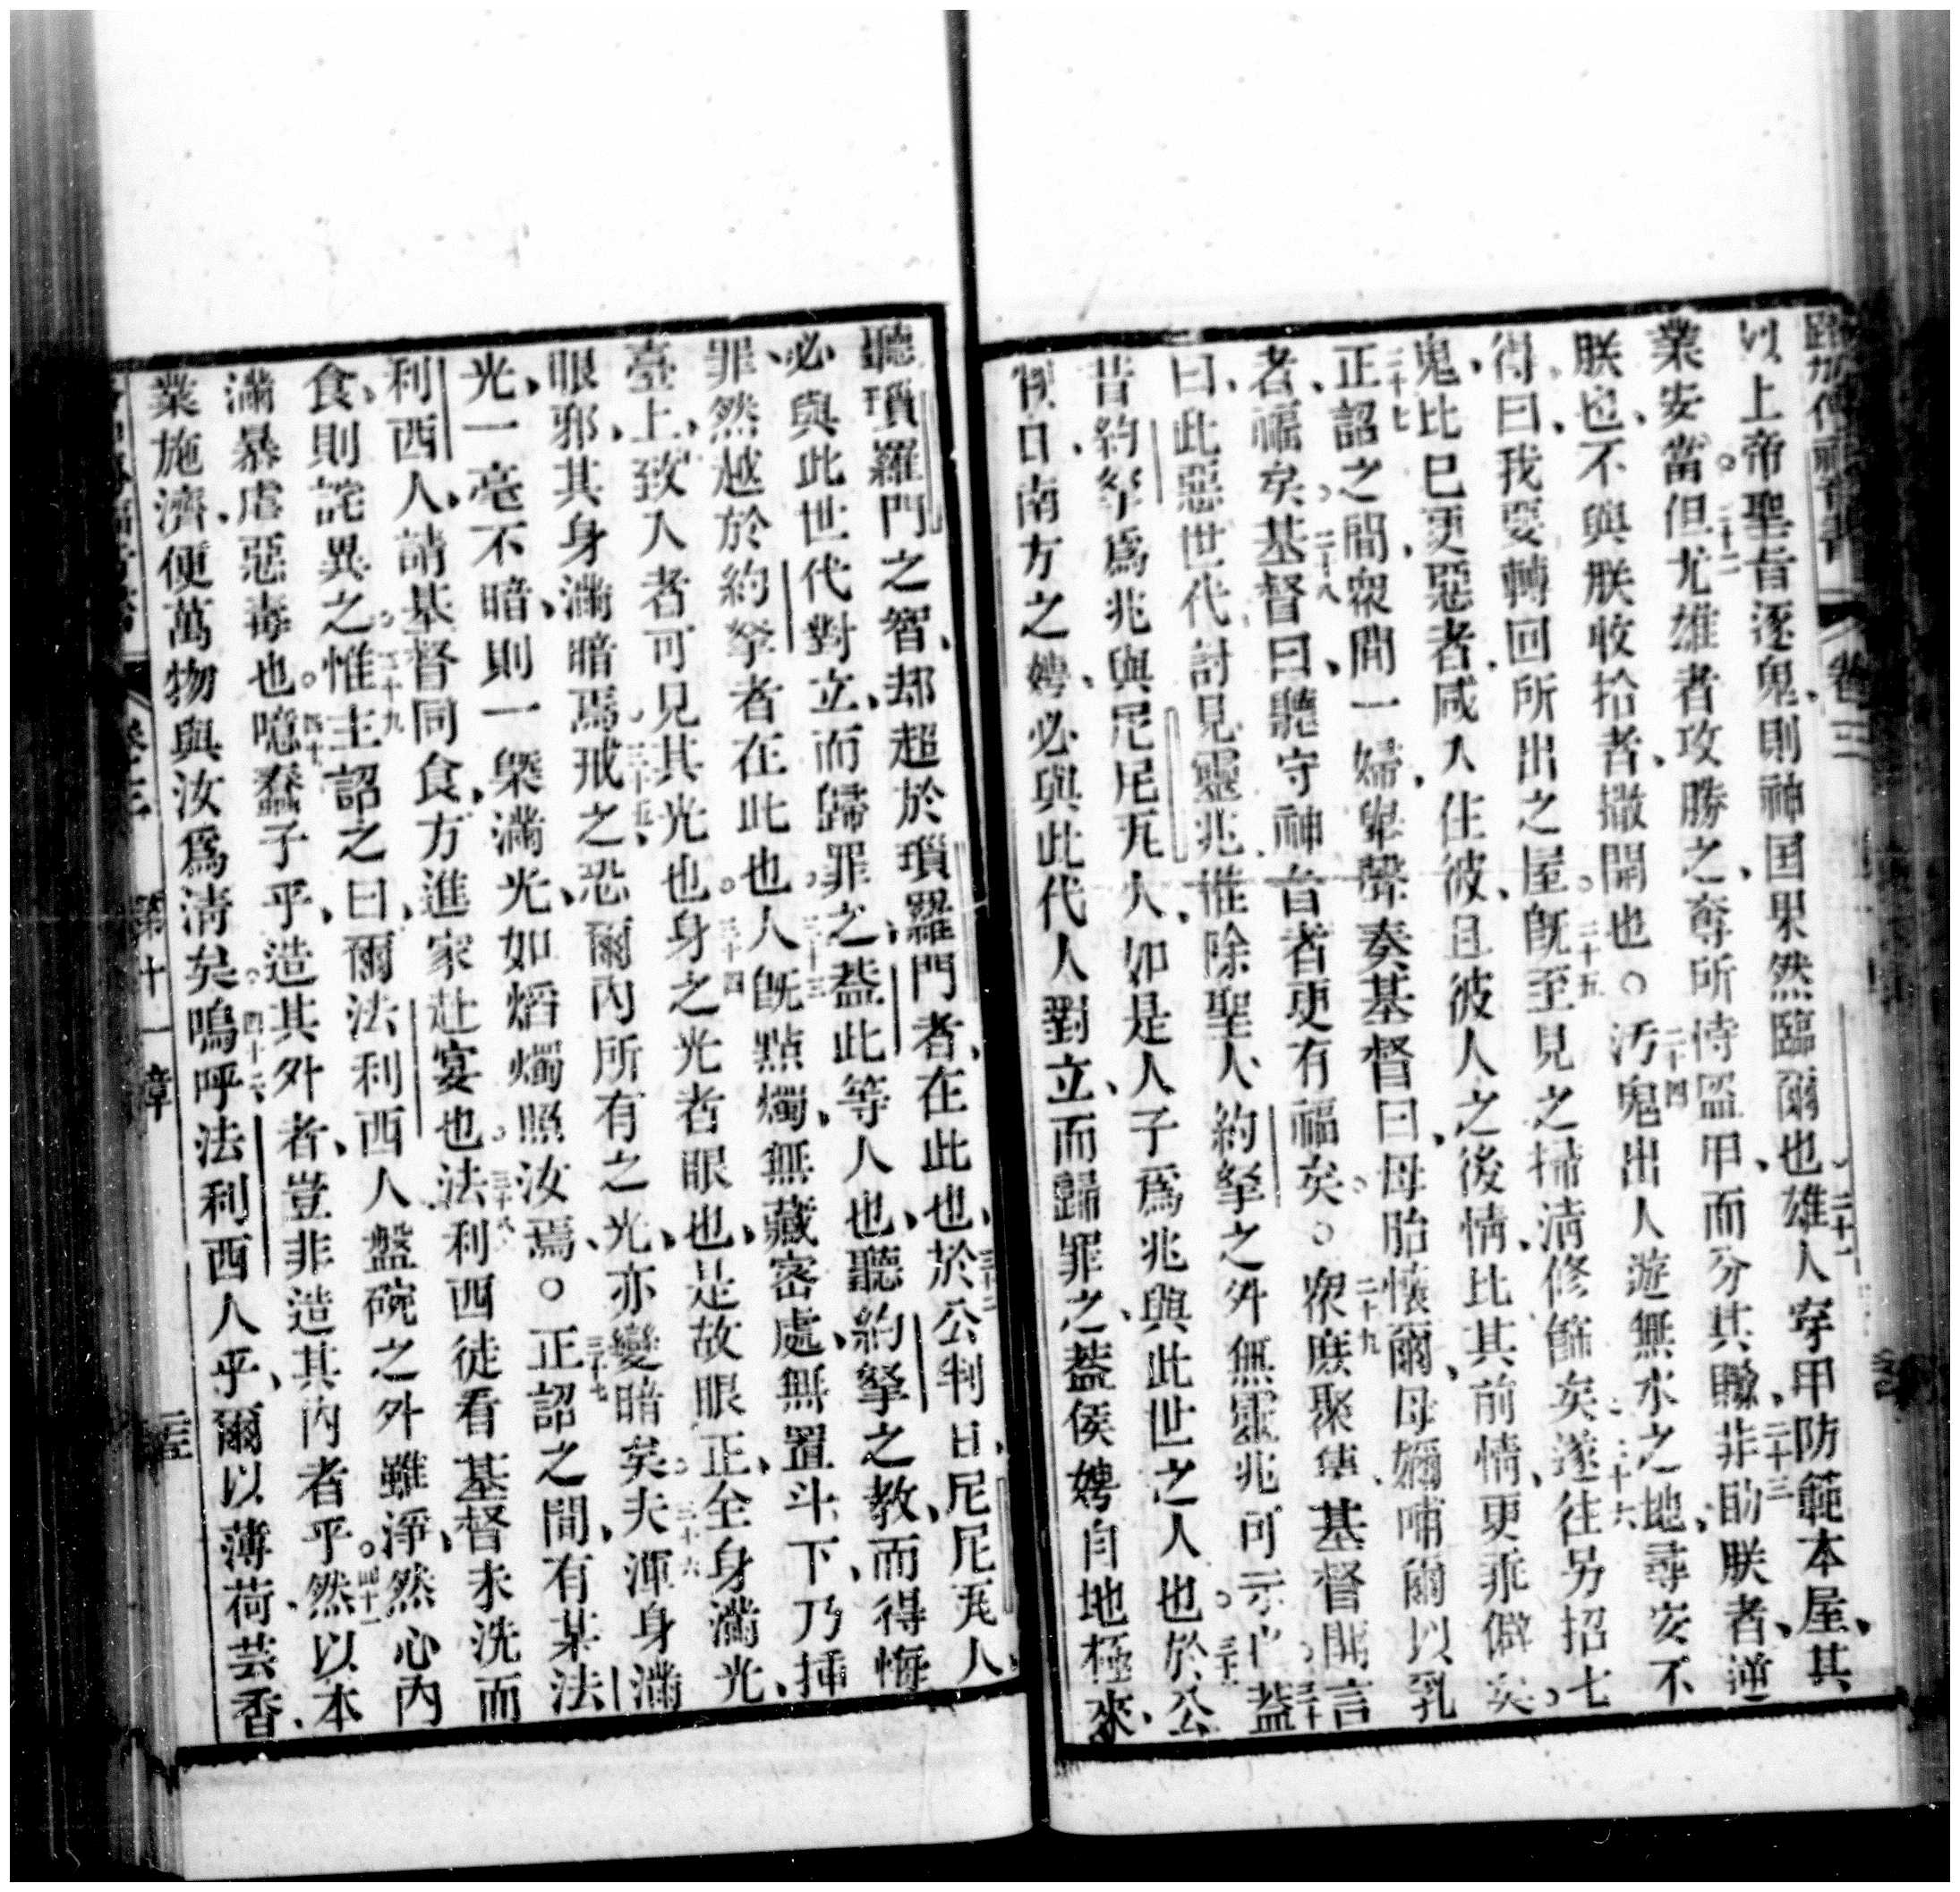 路加傳福音書 卷三
以上帝聖旨逐鬼、則神国果然臨爾也、二十一雄人穿甲防範本屋、其
業安當。二十二但尤雄者攻勝之、奪所恃盔甲、而分其贓、二十三非助朕者、逆
朕也、不與朕收拾者、撒開也。○二十四汚鬼出人、遊無水之地、尋安不
得、曰、我要轉回所出之屋。二十五旣至見之掃清修飾矣、二十六遂往另招七
鬼、比已更惡者、咸入住彼、且彼人之後情、比其前情、更乖僻矣、
二十七正詔之間、衆間一婦、卑聲奏基督曰、母胎懷爾、母嬭哺爾以乳
者、福矣、二十八基督曰、聽守神音者更有福矣。○二十九衆庶聚集、基督開言
曰、此惡世代討見靈兆、惟除聖人約拏之外、無靈兆可示也、三十蓋
昔約拏爲兆與尼尼瓦人、如是人子爲兆與此世之人也。三十一於公
判日、南方之娉、必與此代人對立、而歸罪之、蓋侯娉自地極來、
聽瑣羅門之智、却超於瑣羅門者、在此也、三十二於公判日、尼尼瓦人、
必與此世代對立、而歸罪之、蓋此等人也、聽約拏之教、而得悔
罪、然越於約拏者在此也、三十三人旣點燭、無藏密處、無置斗下、乃挿
臺上、致入者可見其光也。三十四身之光者眼也、是故眼正、全身滿光、
眼邪、其身滿暗焉、三十五戒之、恐爾內所有之光、亦變暗矣、三十六夫渾身滿
光、一毫不暗、則一槩滿光、如熖燭照汝焉、○三十七正詔之間、有某法
利西人、請基督同食、方進家赴宴也、三十八法利西徒看基督未洗而
食、則詫異之、三十九惟主詔之曰、爾法利西人、盤碗之外雖淨、然心內
滿暴虐惡毒也。四十噫蠢子乎、造其外者、豈非造其內者乎。四十一然以本
業施濟、便萬物與汝爲淸矣。四十二嗚呼法利西人乎、爾以薄荷芸香、
卷三 第十一章